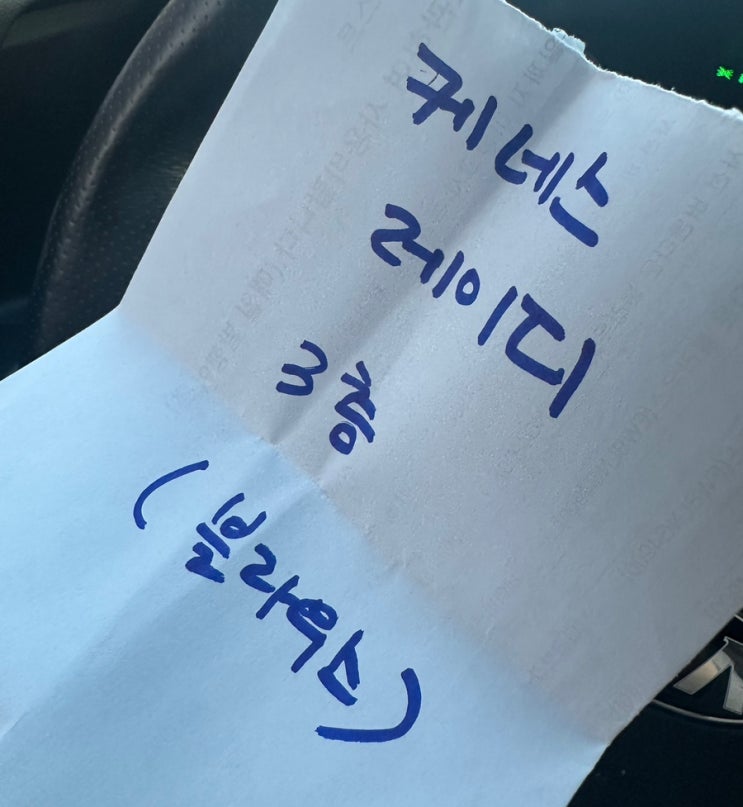 케네스
레이디
3층
(블라우스)